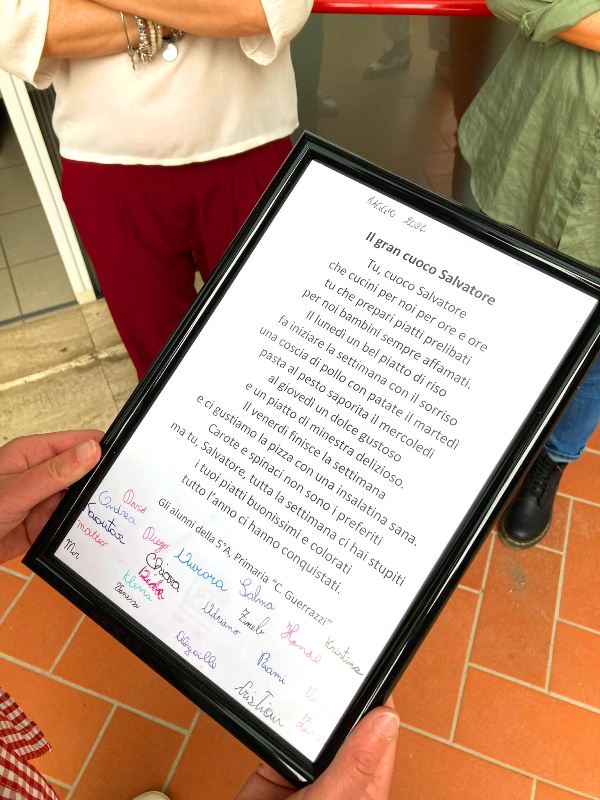 MAGGIO
Il gran cuoco Salvatore
Tu, cuoco Salvatore
che cucini per noi per ore e ore
tu che prepari piatti prelibati
per noi bambini sempre affamati.
Il lunedì un bel piatto di riso
fa iniziare la settimana con il sorriso
una coscia di pollo con patate il martedì
pasta al pesto saporita il mercoledì
al giovedì un dolce gustoso
e un piatto di minestra delizioso.
Il venerdì finisce la settimana
e ci gustiamo la pizza con una insalatina sana.
Carote e spinaci non sono i preferiti
ma tu, Salvatore, tutta la settimana ci hai stupiti
i tuoi piatti buonissimi e colorati
tutto l'anno ci hanno conquistati.
Gli alunni della 5°A, Primaria "C. Guerrazzi"
Andrea
Kaoutar
matteo
Diego
Chiara
Giada
Aurora
Salma
Zineb
Kristina
Adriano